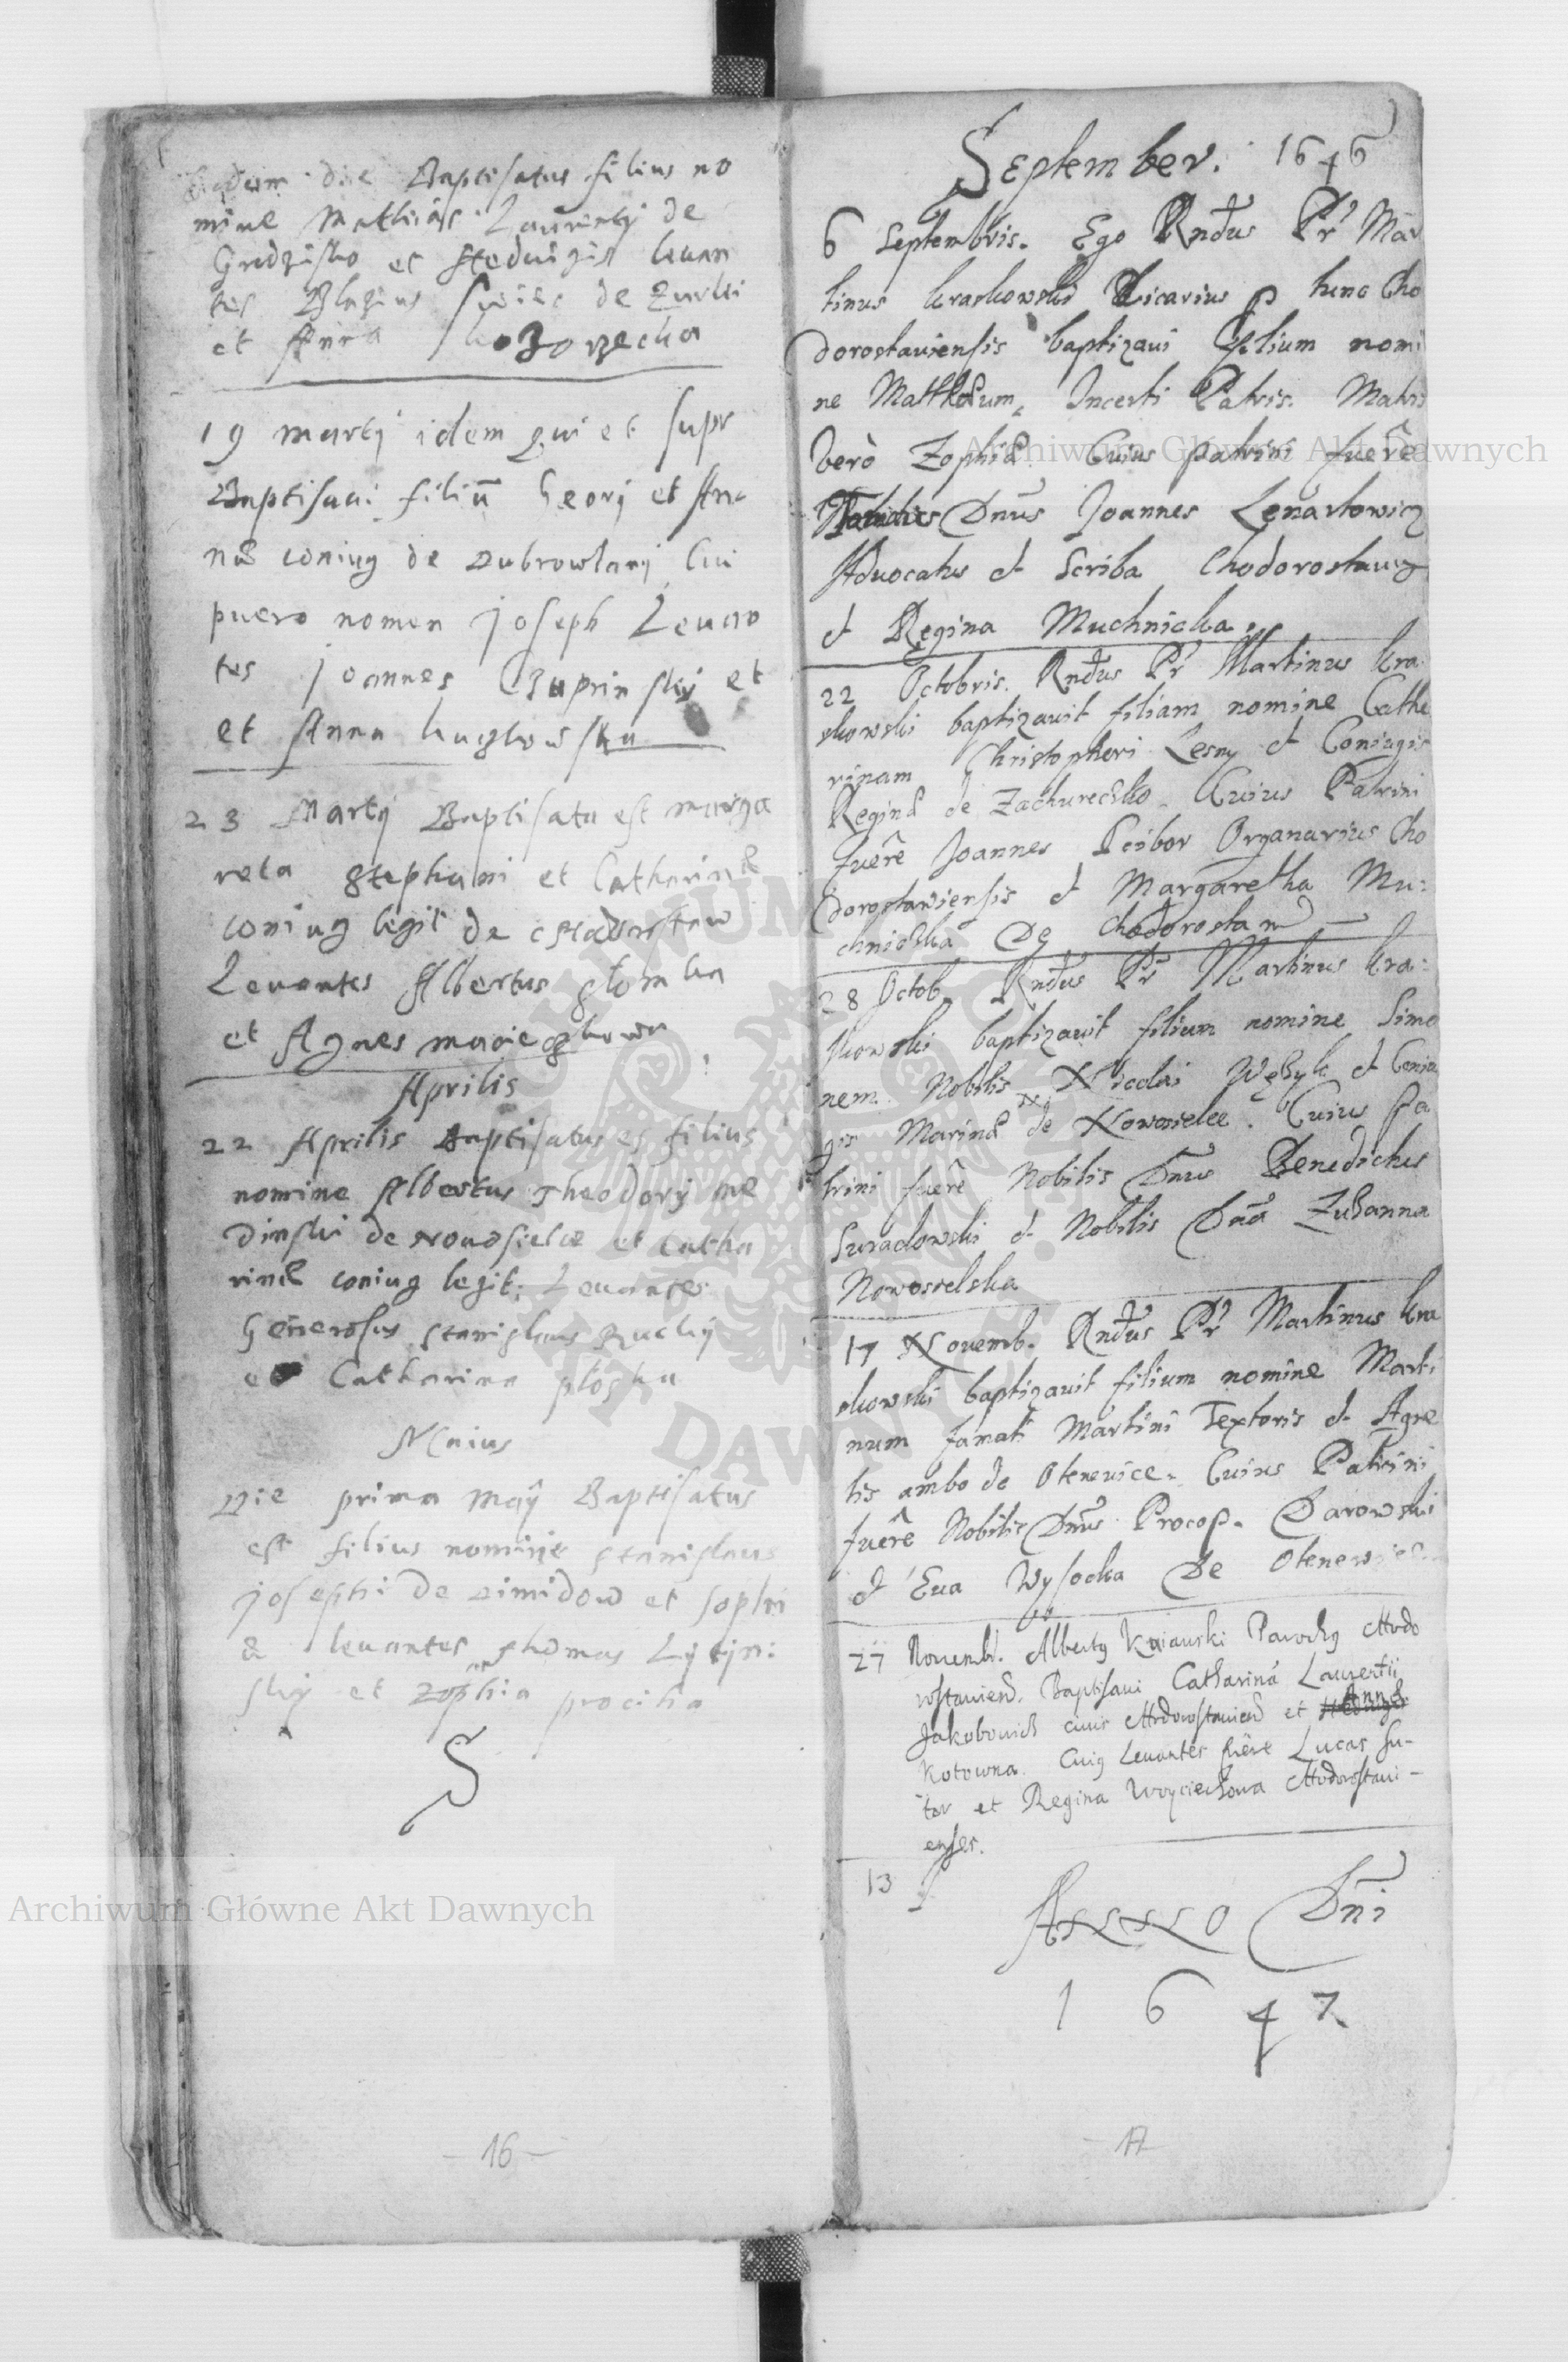 Eadem die Baptisatus filius no
mine Matthias Laurentij de
Grodzisko et Heduigis leuan
tes Blazius de Zurki
et Anna
19 Martij idem qui et supr
Baptisaui filiū Georj et An
næ coniug de Dubrowlany Cui
puero nomen Joseph Leuan
tes Joannes et
et Anna
23 Martij Baptisata est Marga
reta Stephani et Catharinæ
coniug legit de
Leuantes Albertus
et Agnes
Aprilis
22 Aprilis Baptisatus es filius
nomine Albertus Theodory me
dinski de Nouosielce et Catha
rinæ coniug legit: Leuantes
Generosus Stanislaus
et Catharina
Maius
Die prima Maij Baptisatus
est filius nomine Stanislaus
josephi de et sophi
æ leuantes Thomas
et Zophia
16
September. 1646
6 Septembris. Ego Rndus Pr Mar
tinus kraskowski Vicarius p tunc Cho
dorostauiensis baptizaui filium nomi
ne Matthæum, Incerti Patris. Matris
verò Zophiæ. Cuius patrini fuêre
Dnus Joannes Lenartowicz
Aduocatus et Scriba Chodorostauien
et Regina Muchnicka.
22 Octobris. Rndus Pr Martinus kra
skowski baptizauit filiam nomine Cathe
rinam Christopheri Lesny et Coniugis
Reginæ de Zachurecsko. Cuius Patrini
fuêre Joannes Pcibor Organarius Cho
dorostawiensis et Margaretha Mu:
chnicska De Chodorostaw
28 Octob. Rndus Pr Martinus kra:
skowski baptizauit filium nomine Simo
nem. Nobilis Nicolai Wężyk et Coniu
gis Marinæ de Nowosielce. Cuius Pa
trini fuêre Nobilis Dnus Benedictus
Suradowski et Nobilis Dna Zusanna
Nowosielska
17 Nouemb. Rndus Pr Martinus kra
skowski baptizauit filium nomine Marti
num famati Martini Textoris et Agne
tis ambo de Oleneuice. Cuius Patrini
fuêre Nobilis Dnus Procop. Darowski
et Eua Wysocka De
27 Nouemb. Albertus Kuiauski Parochus Chodo
rostauiens. Baptisaui Catharinā Laurentii
Jakobouich ciuis Chodorostauiens et Annæ
Kotowna. Cuius Leuantes fuêre Lucas Su-
tor et Regina Woyciechowa Chodorostaui-
enses.
13
ANNO Dni
1647
17
Archiwum Główne Akt Dawnych
Archiwum Główne Akt Dawnych